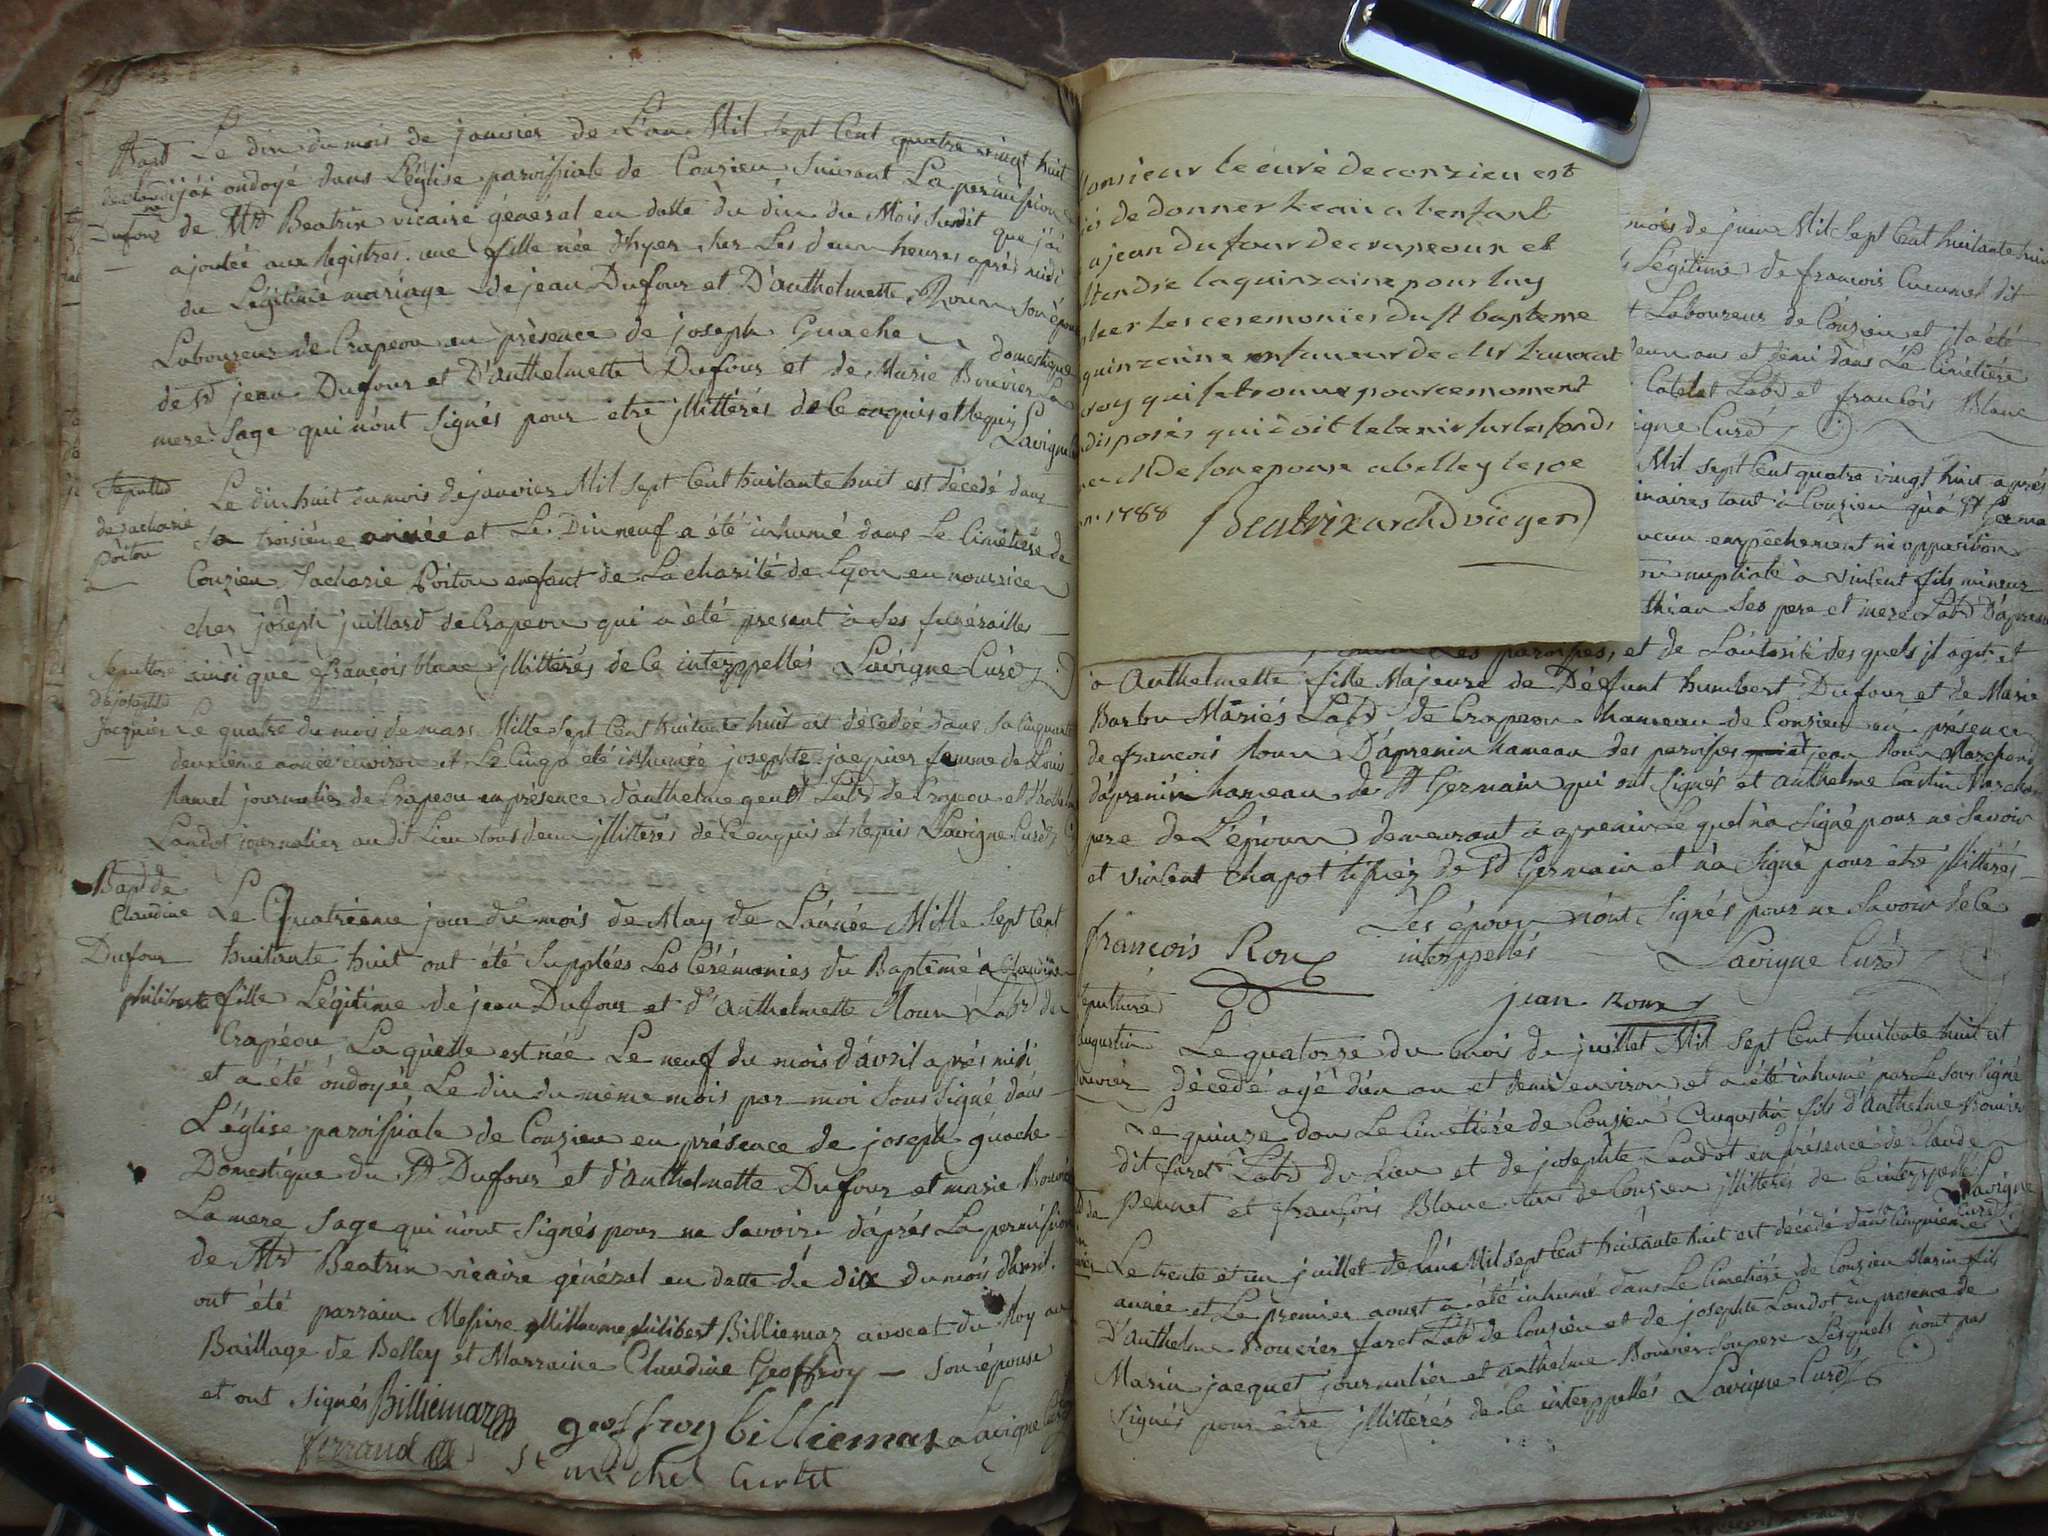 Bapt
de claudine
Dufour
Le dix du mois de janvier de L'an Mil sept Cent quatre vingt huit
j'ai ondoyé dans L'église paroissiale de Conzieu suivant La permission
de Mr Beatrix vicaire général en datte du dix du Mois susdit que j'ai
ajoutée aux Registres. une fille née d'hyer sur Les deux heures après midi
du Légitime mariage de jean Dufour et D'anthelmette Roux son épouse
Laboureur de Crapeou en présence de joseph Guache domestique
de Sr jean Dufour et D'anthelmette Dufour et de Marie Bouvier La
mere sage qui n'ont signés pour etre jllittérés de ce enquis et requis
Lavigne
Sepulture
de zacharie
Poiton
Le dix huit du mois de janvier Mil sept Cent huitante huit est décedé dans
sa troisiéme année et Le Dix neuf a été inhumé dans Le Cimétière de
Conzieu zacharie Poiton enfant de La charité de Lyon en nourrice
chez joseph juillard de Crapeou qui a été present à ses funérailles
ainsi que françois blanc jllittérés de ce interppellés Lavigne Curé
Sepulture
de josephte
Jacquier
Le quatre du mois de mars Mille sept Cent huitante huit est décedée dans sa cinquante
deuxième année environ et Le cinq a été inhumée josephte jacquier femme de Louis
hamel journalier de Crapeou en présence d'anthelme genet Labr de Crapeou et d'anthelme
Landot journalier au dit Lieu tous deux jllittérés de ce enquis et requis Lavigne Curé
Bapt de
Claudine
Dufour
philiberte
Le Quatrieme jour du mois de May de L'année Mille sept Cent
huitante huit ont été supplées Les Cérémonies du Baptême a Claudine
fille Légitime de jean Dufour et d'anthelmette Roux Labr de
Crapéou, La quelle est née Le neuf du mois d'avril après midi
et a été ondoyée Le dix du même mois par moi sous signé dans
L'église paroissiale de Conzieu en présence de joseph guache
Domestique du Sr Dufour et d'anthelmette Dufour et marie Bouvier
La mere sage qui n'ont signés pour ne savoir d'après La permission
de Mr Beatrix vicaire général en datte du dix du mois d'avril.
ont été parrain Messire philibert Billiemaz avocat du Roy au
Baillage de Belley et Marraine Claudine Geoffroy - son épouse
et ont signés Billiemaz
geoffroy billiemaz Lavigne Curé
ferrand St michel Curtet
Monsieur le curé de conzieu est
de donner l'eau a l'enfant
a jean dufour de crapeoux et
attendre la quinzaine pour luy
les ceremonies du st bapteme
quinzaine en faveur de Mr l'avocat
du roy qui se trouve pour ce moment
indisposés qui doit le tenir sur les fonds
avec Me De son epouse a belley le 10e
1788 Beatrix arch D vic gen
mois de juin Mil sept Cent huitante huit
Légitime de francois Cucumel dit
Laboureur de Conzieu et il a été
deux ans et demi dans Le Cimétière
Catelet Labr et francois Blanc
Lavigne Curé
Mil sept Cent quatre vingt huit après
tant à Conzieu qu'à St Germain
aucun empêchement ni opposition
nuptiale à vincent fils mineur
ses pere et mere Labr D'aprenin
les paroisses, et de L'autorité des quels il agit et
a Anthelmette fille Majeure de Défunt humbert Dufour et de Marie
Barbou Mariés Labr de Crapeou hameau de Conzieu en présence
de francois Roux D'aprenin hameau des paroisses et jean Roux Marchand
d'aprenin hameau de St Germain qui ont signés et anthelme
pere de L'époux demeurant a aprenin Le quel n'a signé pour ne savoir
et vincent chapot de St Germain et n'a signé pour être jllittérés
Les époux n'ont signés pour ne savoir de ce
interppellés Lavigne Curé
françois Roux
jean Roux
sepulture
augustin
bouvier
Le quatorze du mois de juillet Mil sept Cent huitante huit est
décedé agé d'un an et demi environ et a été inhumé par Le sous signé
Le quinze dans Le Cimétière de Conzieu Augustin fils d'anthelme Bouvier
dit faret Labr du Lieu et de josephte Landot en présence de Claude
Pennet et françois Blanc de Conzieu jllittérés de ce interppellés Lavigne
Curé
Le trente et un juillet de L'an Mil sept Cent huitante huit est décédé dans La cinquieme
année et Le premier aoust a été inhumé dans Le Cimétière de Conzieu Marin fils
D'anthelme Bouvier faret Labr de Conzieu et de josephte Landot en présence de
Marin jacquet journalier et anthelme Bouvier son pere Lesquels n'ont pas
signés pour être jllittérés de ce interppellés Lavigne Curé